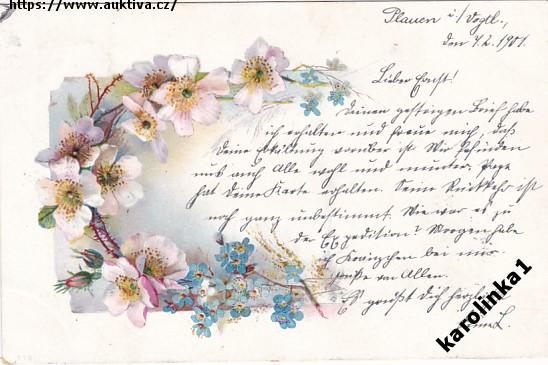 https://www.auktiva.cz/
Plauen i/Vogtl.,
den 4.2.1901.
Lieber Ernst!
Deinen gestrigen Brief habe
ich erhalten und freue mich, daß
Deine Erkältung vorüber ist. Wir befinden
uns auch Alle wohl und munter. Papa
hat Deine Karte erhalten. Seine Rückkehr ist
noch ganz unbestimmt. Wie war es zu
der Expedition? Morgen habe
ich Kränzchen bei mir.
Grüße von Allen.
Es grüßt Dich herzlich
L.
karolinka1